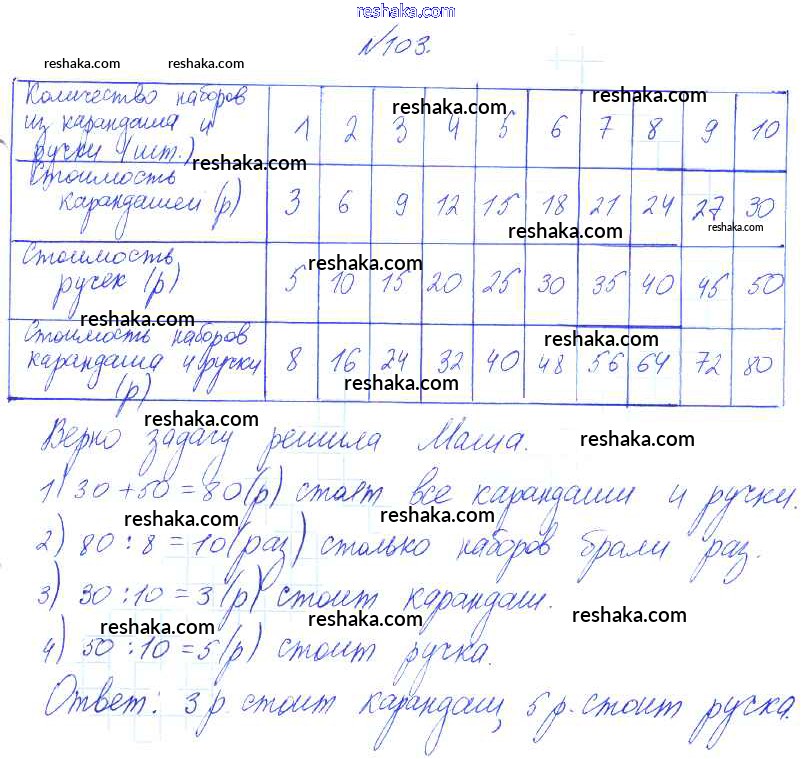 reshaka.com
№103.
reshaka.com reshaka.com
Количество наборов из карандаша и ручки (шт.) 1 2 3 4 5 6 7 8 9 10
reshaka.com reshaka.com reshaka.com
Стоимость карандашей (р) 3 6 9 12 15 18 21 24 27 30
reshaka.com reshaka.com
Стоимость ручек (р) 5 10 15 20 25 30 35 40 45 50
reshaka.com reshaka.com
Стоимость наборов карандаша и ручки (р) 8 16 24 32 40 48 56 64 72 80
reshaka.com reshaka.com
reshaka.com
Верно задачу решила Маша.
reshaka.com
1) 30 + 50 = 80 (р) стоят все карандаши и ручки.
reshaka.com reshaka.com
2) 80 : 8 = 10 (раз) столько наборов брали раз.
3) 30 : 10 = 3 (р) стоит карандаш.
reshaka.com reshaka.com
4) 50 : 10 = 5 (р) стоит ручка.
Ответ: 3 р. стоит карандаш, 5 р. стоит ручка.